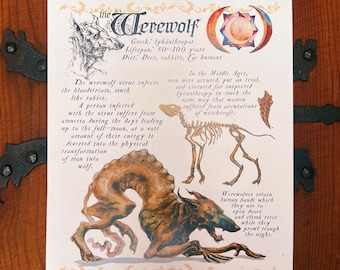 the Werewolf
Greek: lykánthropos
Lifespan: 50-100 years
Diet: Deer, rabbits, & humans
The werewolf virus infects
the bloodstream, much
like rabies.
A person infected
with the virus suffers from
amnesia during the days leading
up to the full-moon, as a vast
amount of their energy is
diverted into the physical
transformation
of man into
wolf.
In the Middle Ages,
men were accused, put on trial,
and executed for suspected
lycanthropy in much the
same way that women
suffered from accusations
of witchcraft.
Werewolves retain
human hands which
they use to
open doors
and climb trees
while they
prowl through
the night.